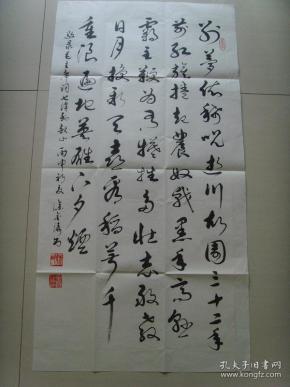 别梦依稀咒逝川故园三十二年
前红旗卷起农奴戟黑手高悬
霸主鞭为有牺牲多壮志敢教
日月换新天喜看稻菽千
重浪遍地英雄下夕烟
孔夫子旧书网